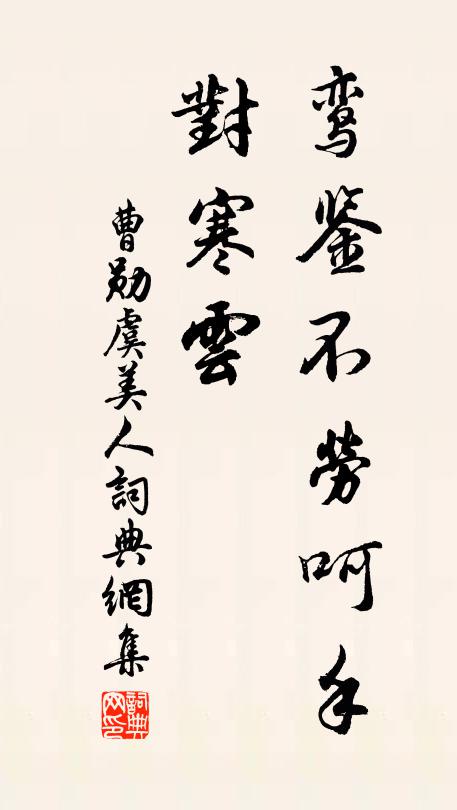 鸾鉴不勞呵手
對寒雲
曹勛虞美人詞典網集
詞典網印